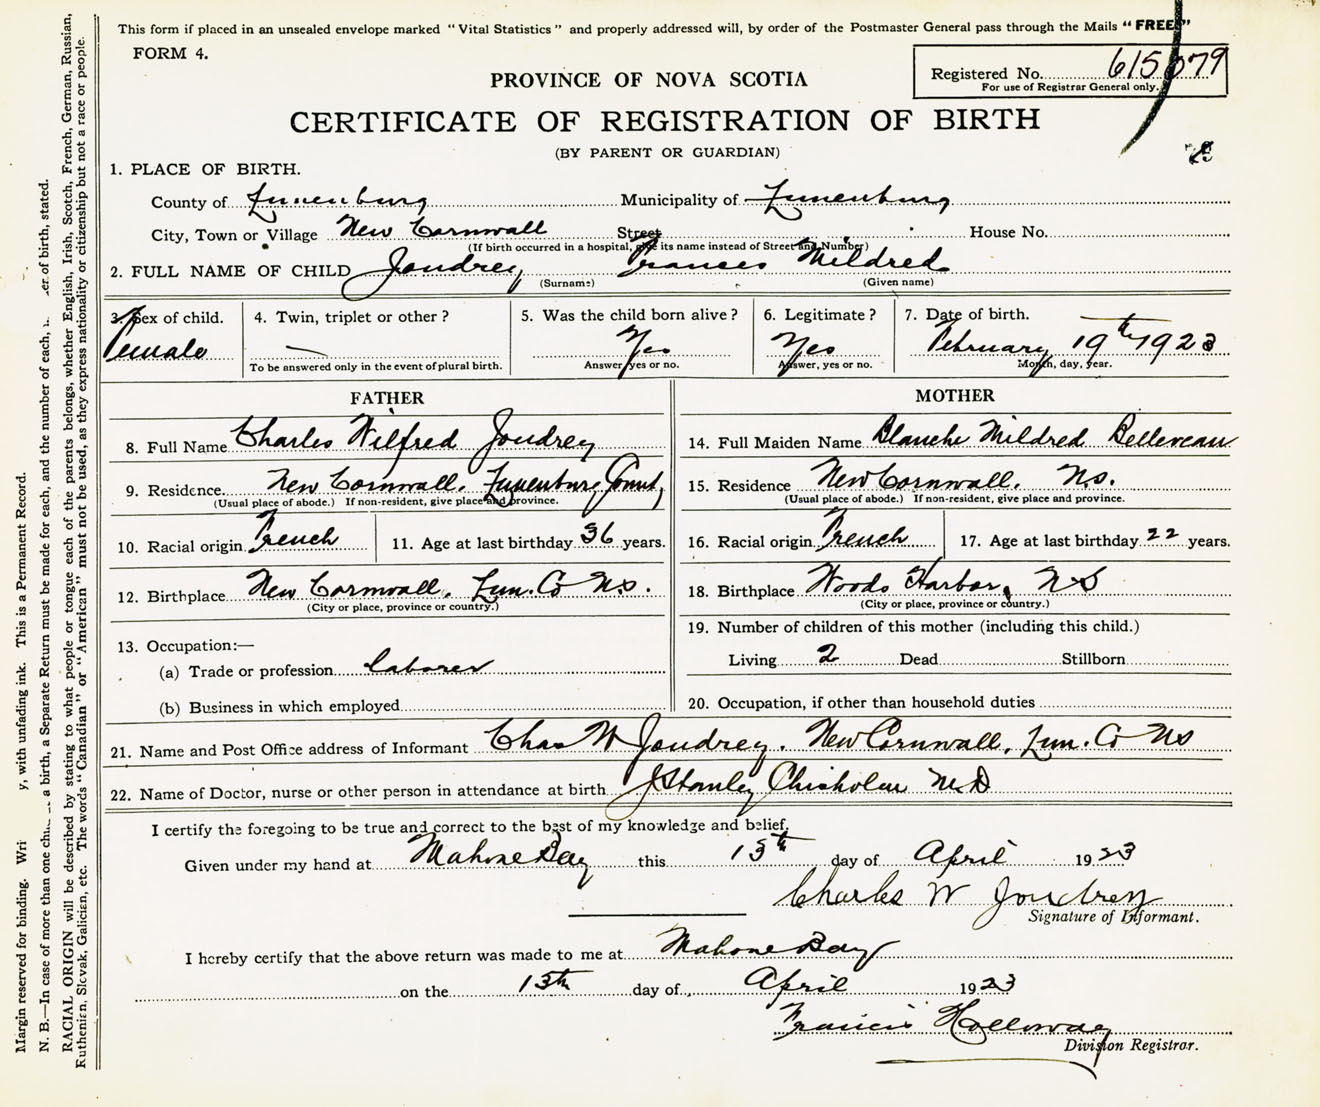 This form if placed in an unsealed envelope marked "Vital Statistics" and properly addressed will, by order of the Postmaster General pass through the Mails "FREE"
FORM 4.
Registered No. 615079
For use of Registrar General only.
PROVINCE OF NOVA SCOTIA
CERTIFICATE OF REGISTRATION OF BIRTH
(BY PARENT OR GUARDIAN)
1. PLACE OF BIRTH.
County of Lunenburg Municipality of Lunenburg
City, Town or Village New Cornwall Street House No.
(If birth occurred in a hospital, give its name instead of Street and Number)
2. FULL NAME OF CHILD Joudrey Frances Mildred
(Surname) (Given name)
3. Sex of child. 4. Twin, triplet or other? 5. Was the child born alive? 6. Legitimate? 7. Date of birth.
Female — Yes Yes February 19th 1923
To be answered only in the event of plural birth. Answer yes or no. Answer, yes or no. Month, day, year.
FATHER
8. Full Name Charles Wilfred Joudrey
9. Residence New Cornwall, Lunenburg County
(Usual place of abode.) If non-resident, give place and province.
10. Racial origin French 11. Age at last birthday 36 years.
12. Birthplace New Cornwall, Lun. Co N.S.
(City or place, province or country.)
13. Occupation:—
(a) Trade or profession laborer
(b) Business in which employed
MOTHER
14. Full Maiden Name Blanche Mildred Belleveau
15. Residence New Cornwall, N.S.
(Usual place of abode.) If non-resident, give place and province.
16. Racial origin French 17. Age at last birthday 22 years.
18. Birthplace Woods Harbor, N S
(City or place, province or country.)
19. Number of children of this mother (including this child.)
Living 2 Dead Stillborn
20. Occupation, if other than household duties
21. Name and Post Office address of Informant Chas W Joudrey. New Cornwall, Lun. Co NS
22. Name of Doctor, nurse or other person in attendance at birth J Stanley Chisholm M.D
I certify the foregoing to be true and correct to the best of my knowledge and belief.
Given under my hand at Mahone Bay this 13th day of April 1923
Charles W Joudrey
Signature of Informant.
I hereby certify that the above return was made to me at Mahone Bay
on the 13th day of April 1923
Francis Holloway
Division Registrar.
Margin reserved for binding. Wri y, with unfading ink. This is a Permanent Record.
N. B.—In case of more than one a birth, a Separate Return must be made for each, and the number of each, er of birth, stated.
RACIAL ORIGIN will be described by stating to what people or tongue each of the parents belongs, whether English, Irish, Scotch, French, German, Russian,
Ruthenian, Slovak, Galician, etc. The words "Canadian" or "American" must not be used, as they express nationality or citizenship but not a race or people.